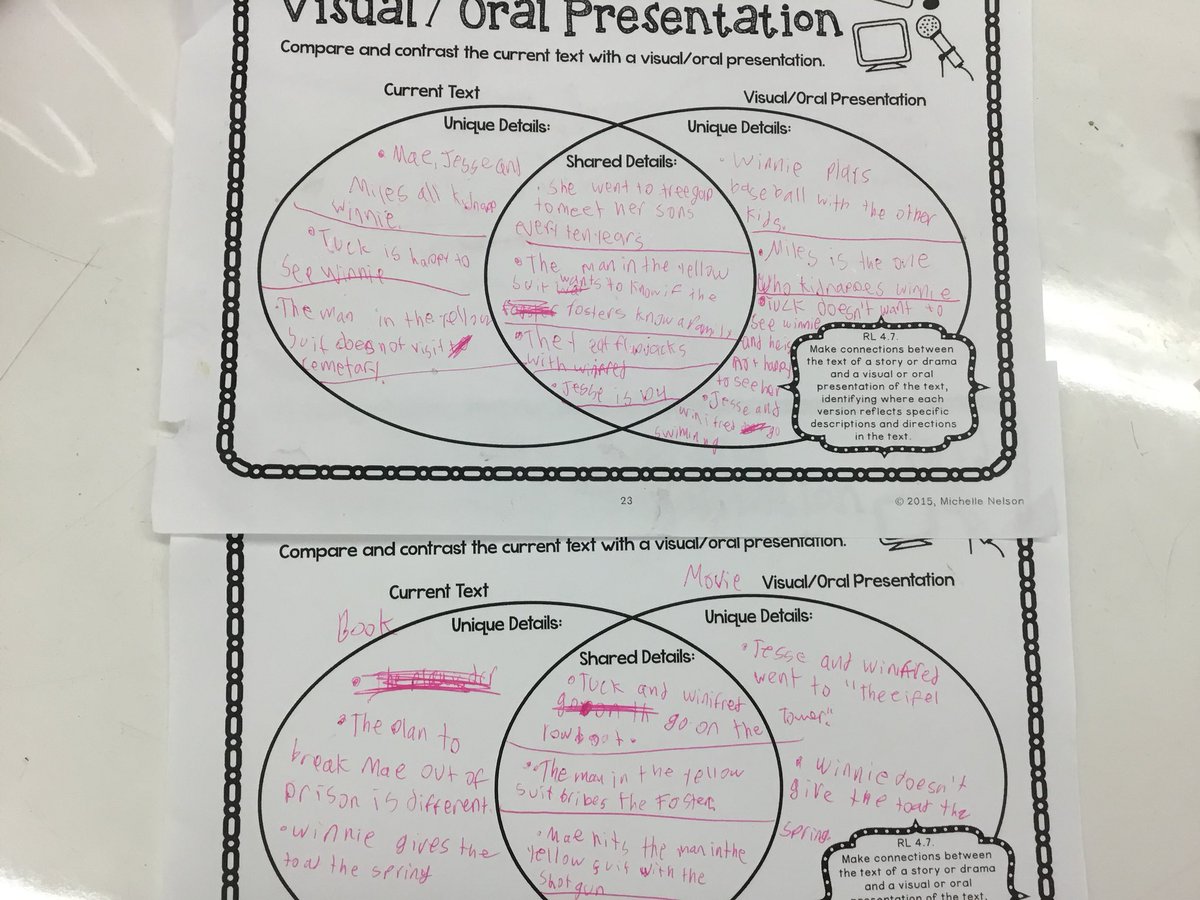 Visual / Oral Presentation
Compare and contrast the current text with a visual/oral presentation.
Current Text
Visual/Oral Presentation
Unique Details:
• Mae, Jesse and
Miles all kidnape
winnie.
• Tuck is happy to
see winnie
• The man in the yellow
suit does not visit
cemetary.
Shared Details:
• she went to treegap
to meet her sons
every ten years
• The man in the yellow
suit wants to know if the
fosters know a family
• They eat flapjacks
with winfred
• Jesse is
Unique Details:
• Winnie plays
baseball with the other
kids.
• Miles is the one
who kidnapes winnie
• Tuck doesn't want to
see winnie
and he is
not happy
to see her
• Jesse and
winifred go
swimming
RL 4.7.
Make connections between
the text of a story or drama
and a visual or oral
presentation of the text,
identifying where each
version reflects specific
descriptions and directions
in the text.
23
© 2015, Michelle Nelson
Compare and contrast the current text with a visual/oral presentation.
Current Text
Movie Visual/Oral Presentation
Book
Unique Details:
• The plan to
break Mae out of
prison is different.
• winnie gives the
toad the spring
Shared Details:
• Tuck and winifred
go on the
rowboat.
• The man in the yellow
suit bribes the Foster.
• Mae hits the man in the
yellow suit with the
shotgun
Unique Details:
• Jesse and winfred
went to "the eifel
tower."
• Winnie doesn't
give the toad the
spring.
RL 4.7.
Make connections between
the text of a story or drama
and a visual or oral
presentation of the text,